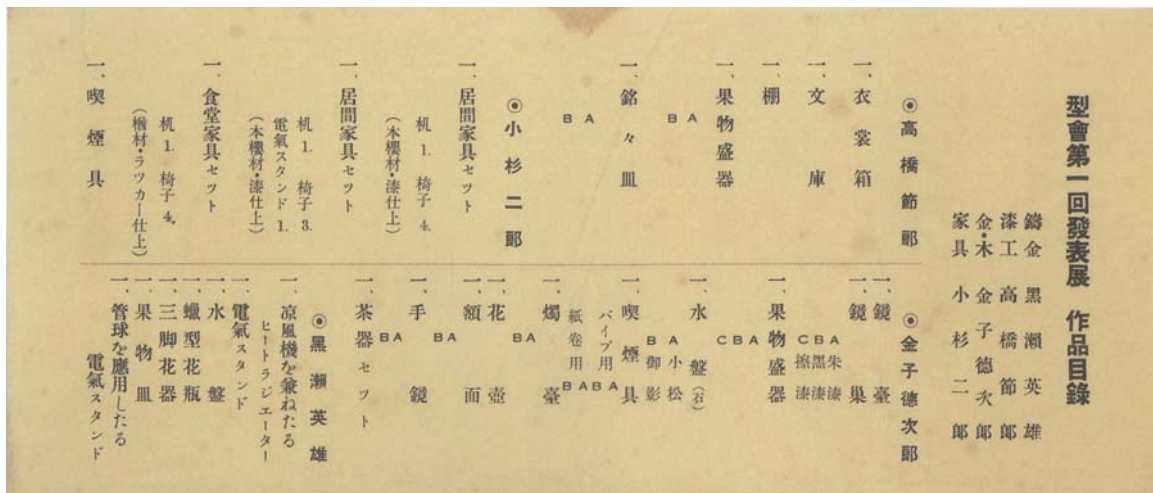 型會第一回發表展 作品目錄
鑄金 黑瀨英雄
漆工 高橋節郎
金・木 金子德次郎
家具 小杉二郎
◉高橋節郎
一、衣裳箱
一、文庫
一、棚
一、果物盛器
A
B
一、銘々皿
A
B
◉小杉二郎
一、居間家具セツト
机 1. 椅子 4.
(本櫻材・漆仕上)
一、居間家具セツト
机 1. 椅子 3.
電氣スタンド 1.
(本櫻材・漆仕上)
一、食堂家具セツト
机 1. 椅子 4.
(楢材・ラツカー仕上)
一、喫煙具
◉金子德次郎
一、鏡臺
一、鏡巢
A 朱漆
B 黑漆
C 擦漆
一、果物盛器
A
B
C
一、水盤(石)
A 小松
B 御影
一、喫煙具
パイプ用 A
B
紙卷用 A
B
一、燭臺
A
B
一、花壺
一、額面
A
B
一、手鏡
A
B
一、茶器セツト
◉黑瀨英雄
一、凉風機を兼ねたる
ヒートラジエーター
一、電氣スタンド
一、水盤
一、蠟型花瓶
一、三脚花器
一、果物皿
一、管球を應用したる
電氣スタンド